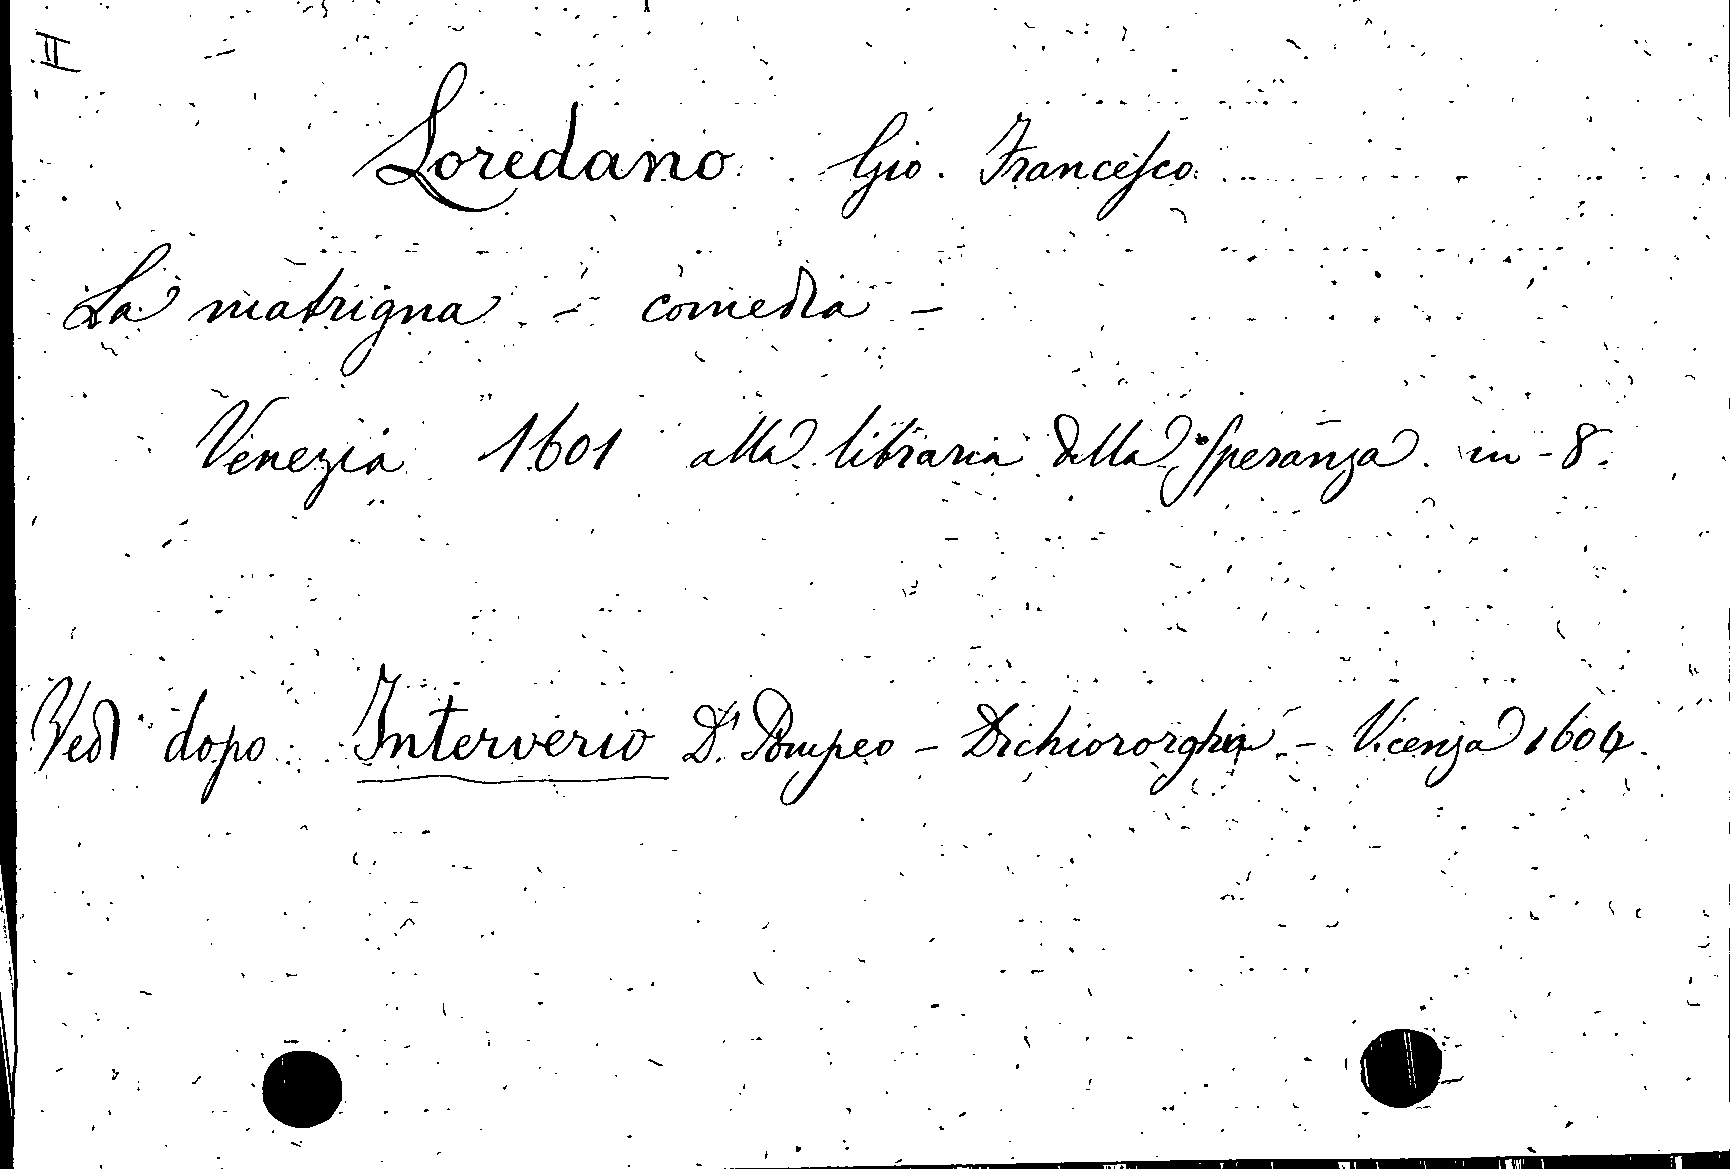 II
Loredano Gio. Francesco
La matrigna - comedia -
Venezia 1601 alla libraria della Speranza in-8.
Vedi dopo Interverio Dr. Pompeo - - Vicenza 1604.